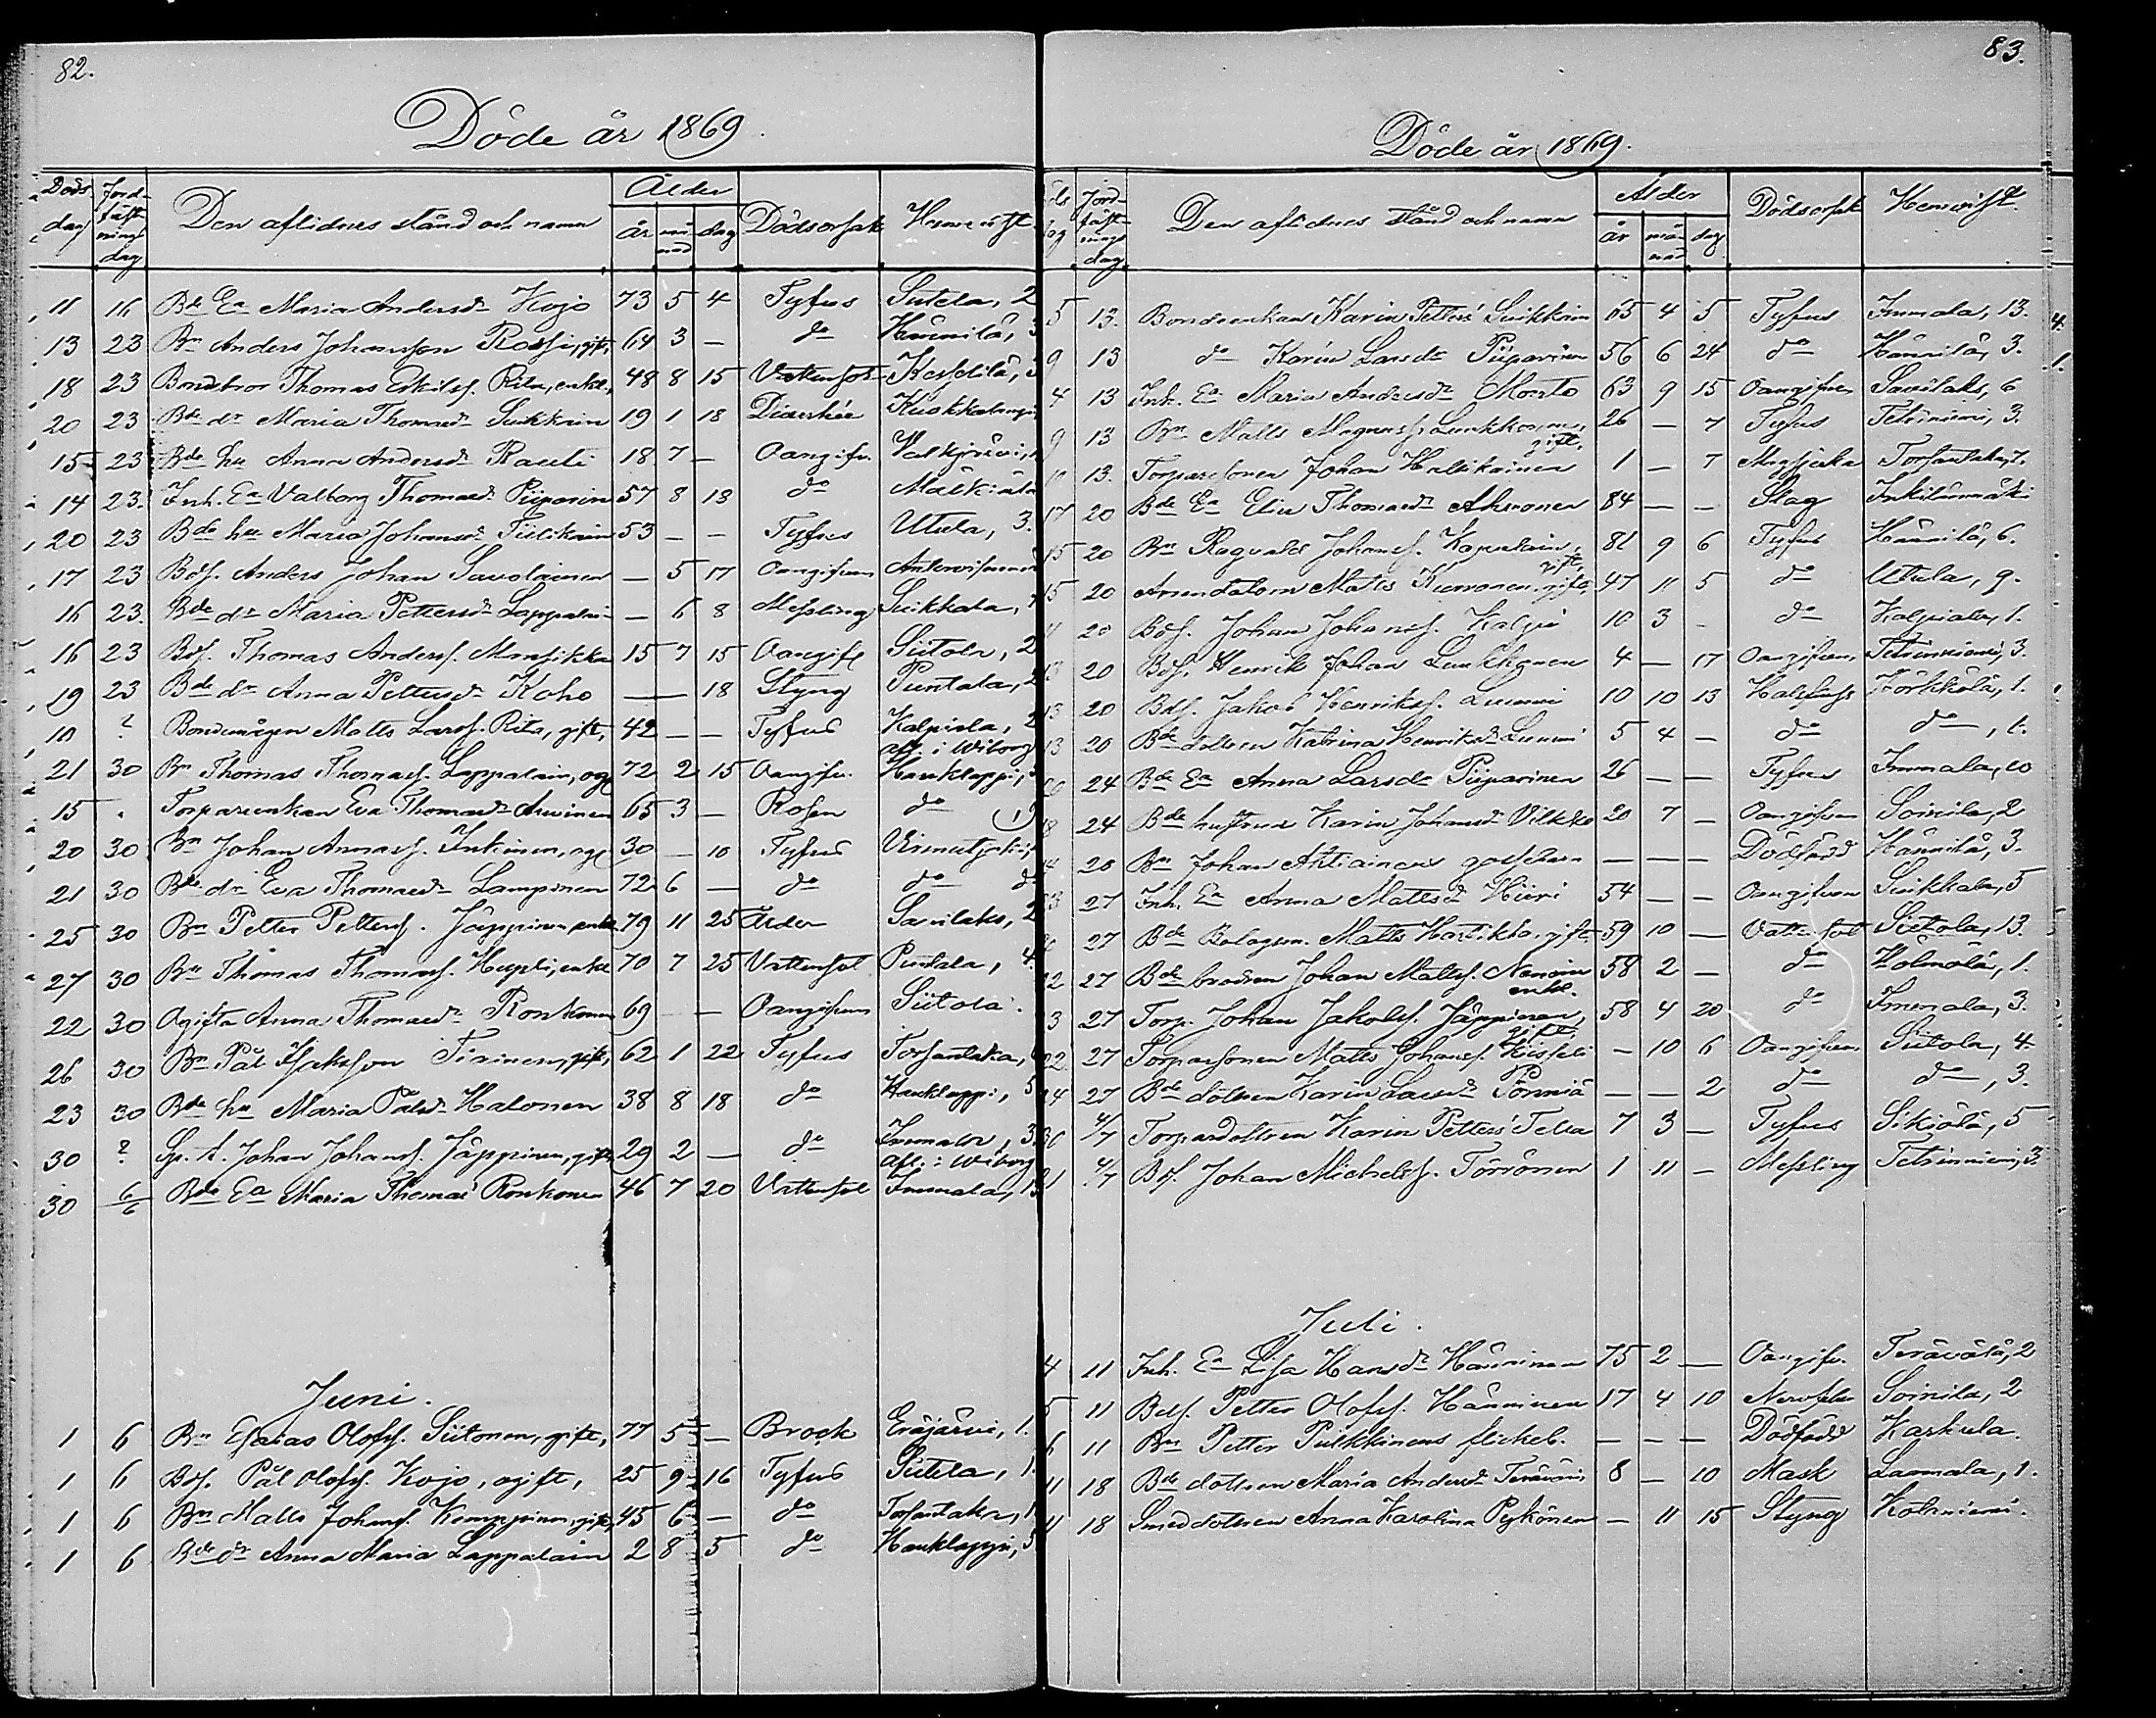 82.
Döde år 1869.
Döds dag Jordfästnings dag Den aflidnes stånd och namn Ålder år månad dag Dödsorsak Hemvist
11 16 Bde Ea Maria Andersdr Kojo 73 5 4 Tyfus Sutela, 2
13 23 Bn Anders Johansson Rossi, gift, 64 3 — do Hännilä, 3
18 23 Bondbror Thomas Eskilss. Rita, enkl., 48 8 15 Vattensot
20 23 Bde dr Maria Thomasdr Suikkain 19 1 18 Diarrhée
15 23 Bde hu Anna Andersdr Rauti 18 7 — Oangifv.
14 23. Inh. Ea Valborg Thomasdr Piiparin 57 8 13 do
20 23 Bde hu Maria Johansdr Tiilikain 53 — — Tyfus Utula, 3.
17 23 Bds. Anders Johan Savolainen — 5 17 Oangifven
16 23. Bde dr Maria Pettersdr Lappalai — 6 8 Messling Suikkala,
16 23 Bds. Thomas Anderss. Mansikka 15 7 15 Oangif Siitola, 2
19 23 Bde dr Anna Pettersdr Koho — 18 Styng Puntala, 2
10 ? Bondemågen Matts Larss. Rita, gift, 42 — — Tyfus Kalpiala, 2
afl. i Wiborg
21 30 Bn Thomas Thomass. Lappalain, ogf 72 2 15 Oangifv. Hauklappi,
15 " Torpareenkan Eva Thomasdr Arvinen 65 3 — Rosen do
20 30 Bn Johan Annass. Inkinen, ogf 30 — 10 Tyfus
21 30 Bde dr Eva Thomasdr Lampinen 72 6 — do do do
25 30 Bn Petter Petterss. Jäppinen, enkl 79 11 25 Ålder Savilaks, 2
27 30 Bn Thomas Thomass. enkl 70 7 25 Vattensot Puntala, 4.
22 30 Ogifta Anna Thomasdr Ronkonen 69 — — Oangifven Siitola.
26 30 Bn Pål Isaksson Tiainen, gift, 62 1 22 Tyfus Torsantaka,
23 30 Bde hu Maria Pålsdr Halonen 38 8 18 do Hauklappi, 5
30 ? Johan Johanss. Jäppinen, gift 29 2 — do Immala, 3
Afl. i Wiborg
30 6/6 Bde Ea Maria Thomasdr Ronkonen 46 7 20 Vattensot Immala, 13
Juni.
1 6 Bn Esaias Olofss. Siitonen, gift, 77 5 — Brock Eräjärvi, 1.
1 6 Bds. Pål Olofss. Kojo, ogift, 25 9 16 Tyfus Sutela, 1.
1 6 Bn Matts Johanss. Kemppinen, gift, 45 6 — do Torsantaka, 1
1 6 Bde dr Anna Maria Lappalain 2 8 5 do Hauklappi, 5
83.
Döde år 1869.
Jordfästnings dag Den aflidnes stånd och namn Ålder år månad dag Dödsorsak Hemvist.
5 13. Bondeenkan Karin Petters Suikkain 65 4 5 Tyfus Immala, 13.
9 13 do Karin Larsdr Piiparinen 56 6 24 do Hännilä, 3.
4 13 Inh. Ea Maria Andersdr Monto 63 9 15 Oangifven Savilaks, 6
9 13 Bn Matts Magnuss. Luukkonen, gift. 26 — 7 Tyfus Tetriniemi, 3.
10 13. Torparesonen Johan Haltikainen 1 — 7
17 20 Bde Ea Elin Thomasdr Ahvonen 84 — — Slag
15 20 Bn Ragvald Johanss. Kapulain, gift, 81 9 6 Tyfus Hännilä, 6.
15 20 Arendatorn Matts Kurronen, gift, 47 11 5 do Utula, 9.
11 20 Bds. Johan Johanss. Kalpio 10 3 - do Kalpiala, 1.
13 20 Bds. Henrik Johan Luukkonen 4 — 17 Oangifven Tetriniemi, 3.
13 20 Bds. Jakob Henrikss. Luumi 10 10 13 Halsfluss Kärkkölä, 1.
13 20 Bde dottren Katrina Henriksdr Luumi 5 4 — do do, 1.
20 24 Bde Ea Anna Larsdr Piiparinen 26 — — Tyfus Immala, 10
18 24 Bde hustrun Karin Johansdr Vilkko 20 7 — Oangifven Soinila, 2
14 20 Bn Johan Ahtiainens gossebarn — — — Dödfödd Hännilä, 3.
23 27 Inh. Ea Anna Mattsdr Hiiri 54 — — Oangifven Suikkala, 5
20 27 Bde Bolagsm. Matts Hartikka, gift, 59 10 — Vattensot Siitola, 13.
22 27 Bde brodren Johan Mattss. Nenoin enkl. 58 2 — do Kolmola, 1.
23 27 Torp. Johan Jakobss. Jäppinen, gift. 58 4 20 do Immala, 3.
22. 27 Torparsonen Matts Johanss. Kisseli — 10 6 Oangifven Siitola, 4.
24 27 Bde dottren Karin Larsdr Pönniä — — 2 do do, 3.
30 4/7 Torpardottren Karin Petters Tella 7 3 — Tyfus Sikiölä, 5
21 4/7 Bds. Johan Michelss. Törrönen 1 11 — Messling Tetriniemi, 3.
Juli.
4 11 Inh. Ea Lisa Hansdr Hänninen 75 2 — Oangifv. Terävälä, 2
5 11 Bds. Petter Olofss. Hänninen 17 4 10 Nervfeber Soinila, 2
6 11 Bn Petter Pulkkinens flickeb. — — — Dödfödd Kaskula.
11 18 Bde dottren Maria Andersdr 8 — 10 Mask Laamala, 1.
11 18 Smeddottren Anna Karolina Pykönen — 11 15 Styng Kolmiemi.